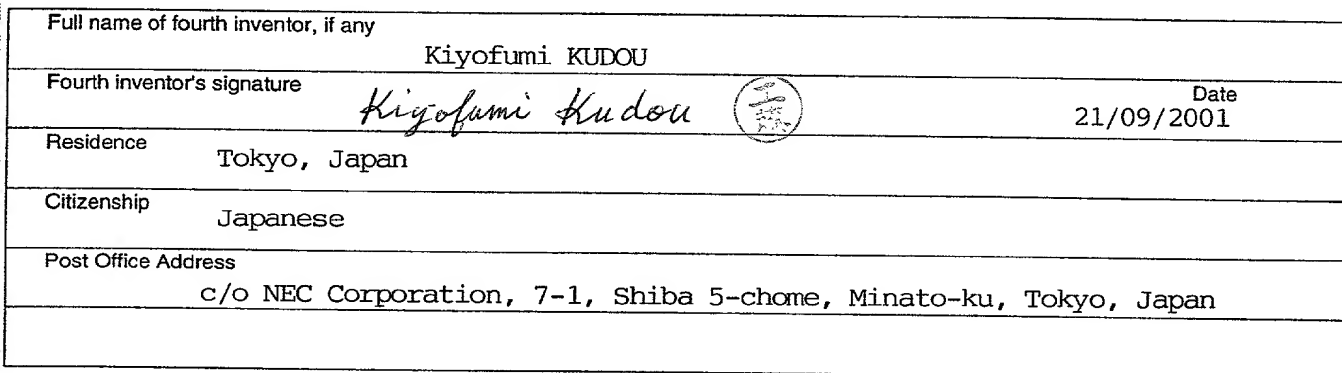 Full name of fourth inventor, if any
Kiyofumi KUDOU
Fourth inventor's signature
Kiyofumi Kudou 工藤
Date
21/09/2001
Residence
Tokyo, Japan
Citizenship
Japanese
Post Office Address
c/o NEC Corporation, 7-1, Shiba 5-chome, Minato-ku, Tokyo, Japan